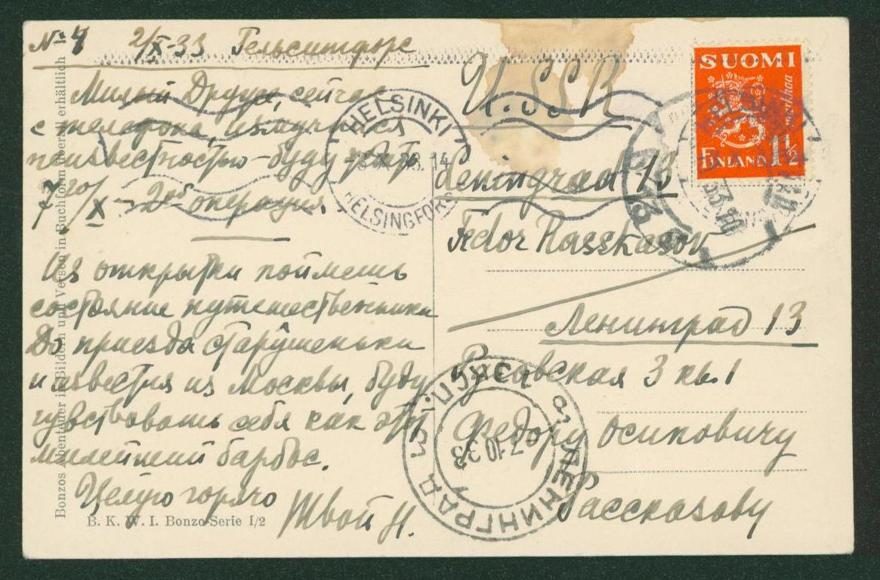 № 4 2/X-33 Гельсингфорс
Милый Дружок, сейчас
с телефона, измучился
неизвестностью - буду
7го/X - 2ая операция
Из открытки поймешь
состояние путешественника
До приезда старушеньки
и известия из Москвы, буду
чувствовать себя как этот
милейший барбос.
Целую горячо
Твой Н.
Bonzos Abenteuer in Bildern und Versen in Buchform überall erhältlich
B. K. W. I. Bonzo-Serie I/2
U.S.S.R
Leningrad 13
Fedor Rasskasov
Ленинград 13
3 кв. 1
Федору Осиповичу
Рассказову
SUOMI
FINLAND 1½
markkaa
HELSINKI
HELSINGFORS
ЛЕНИНГРАД
7.10.33